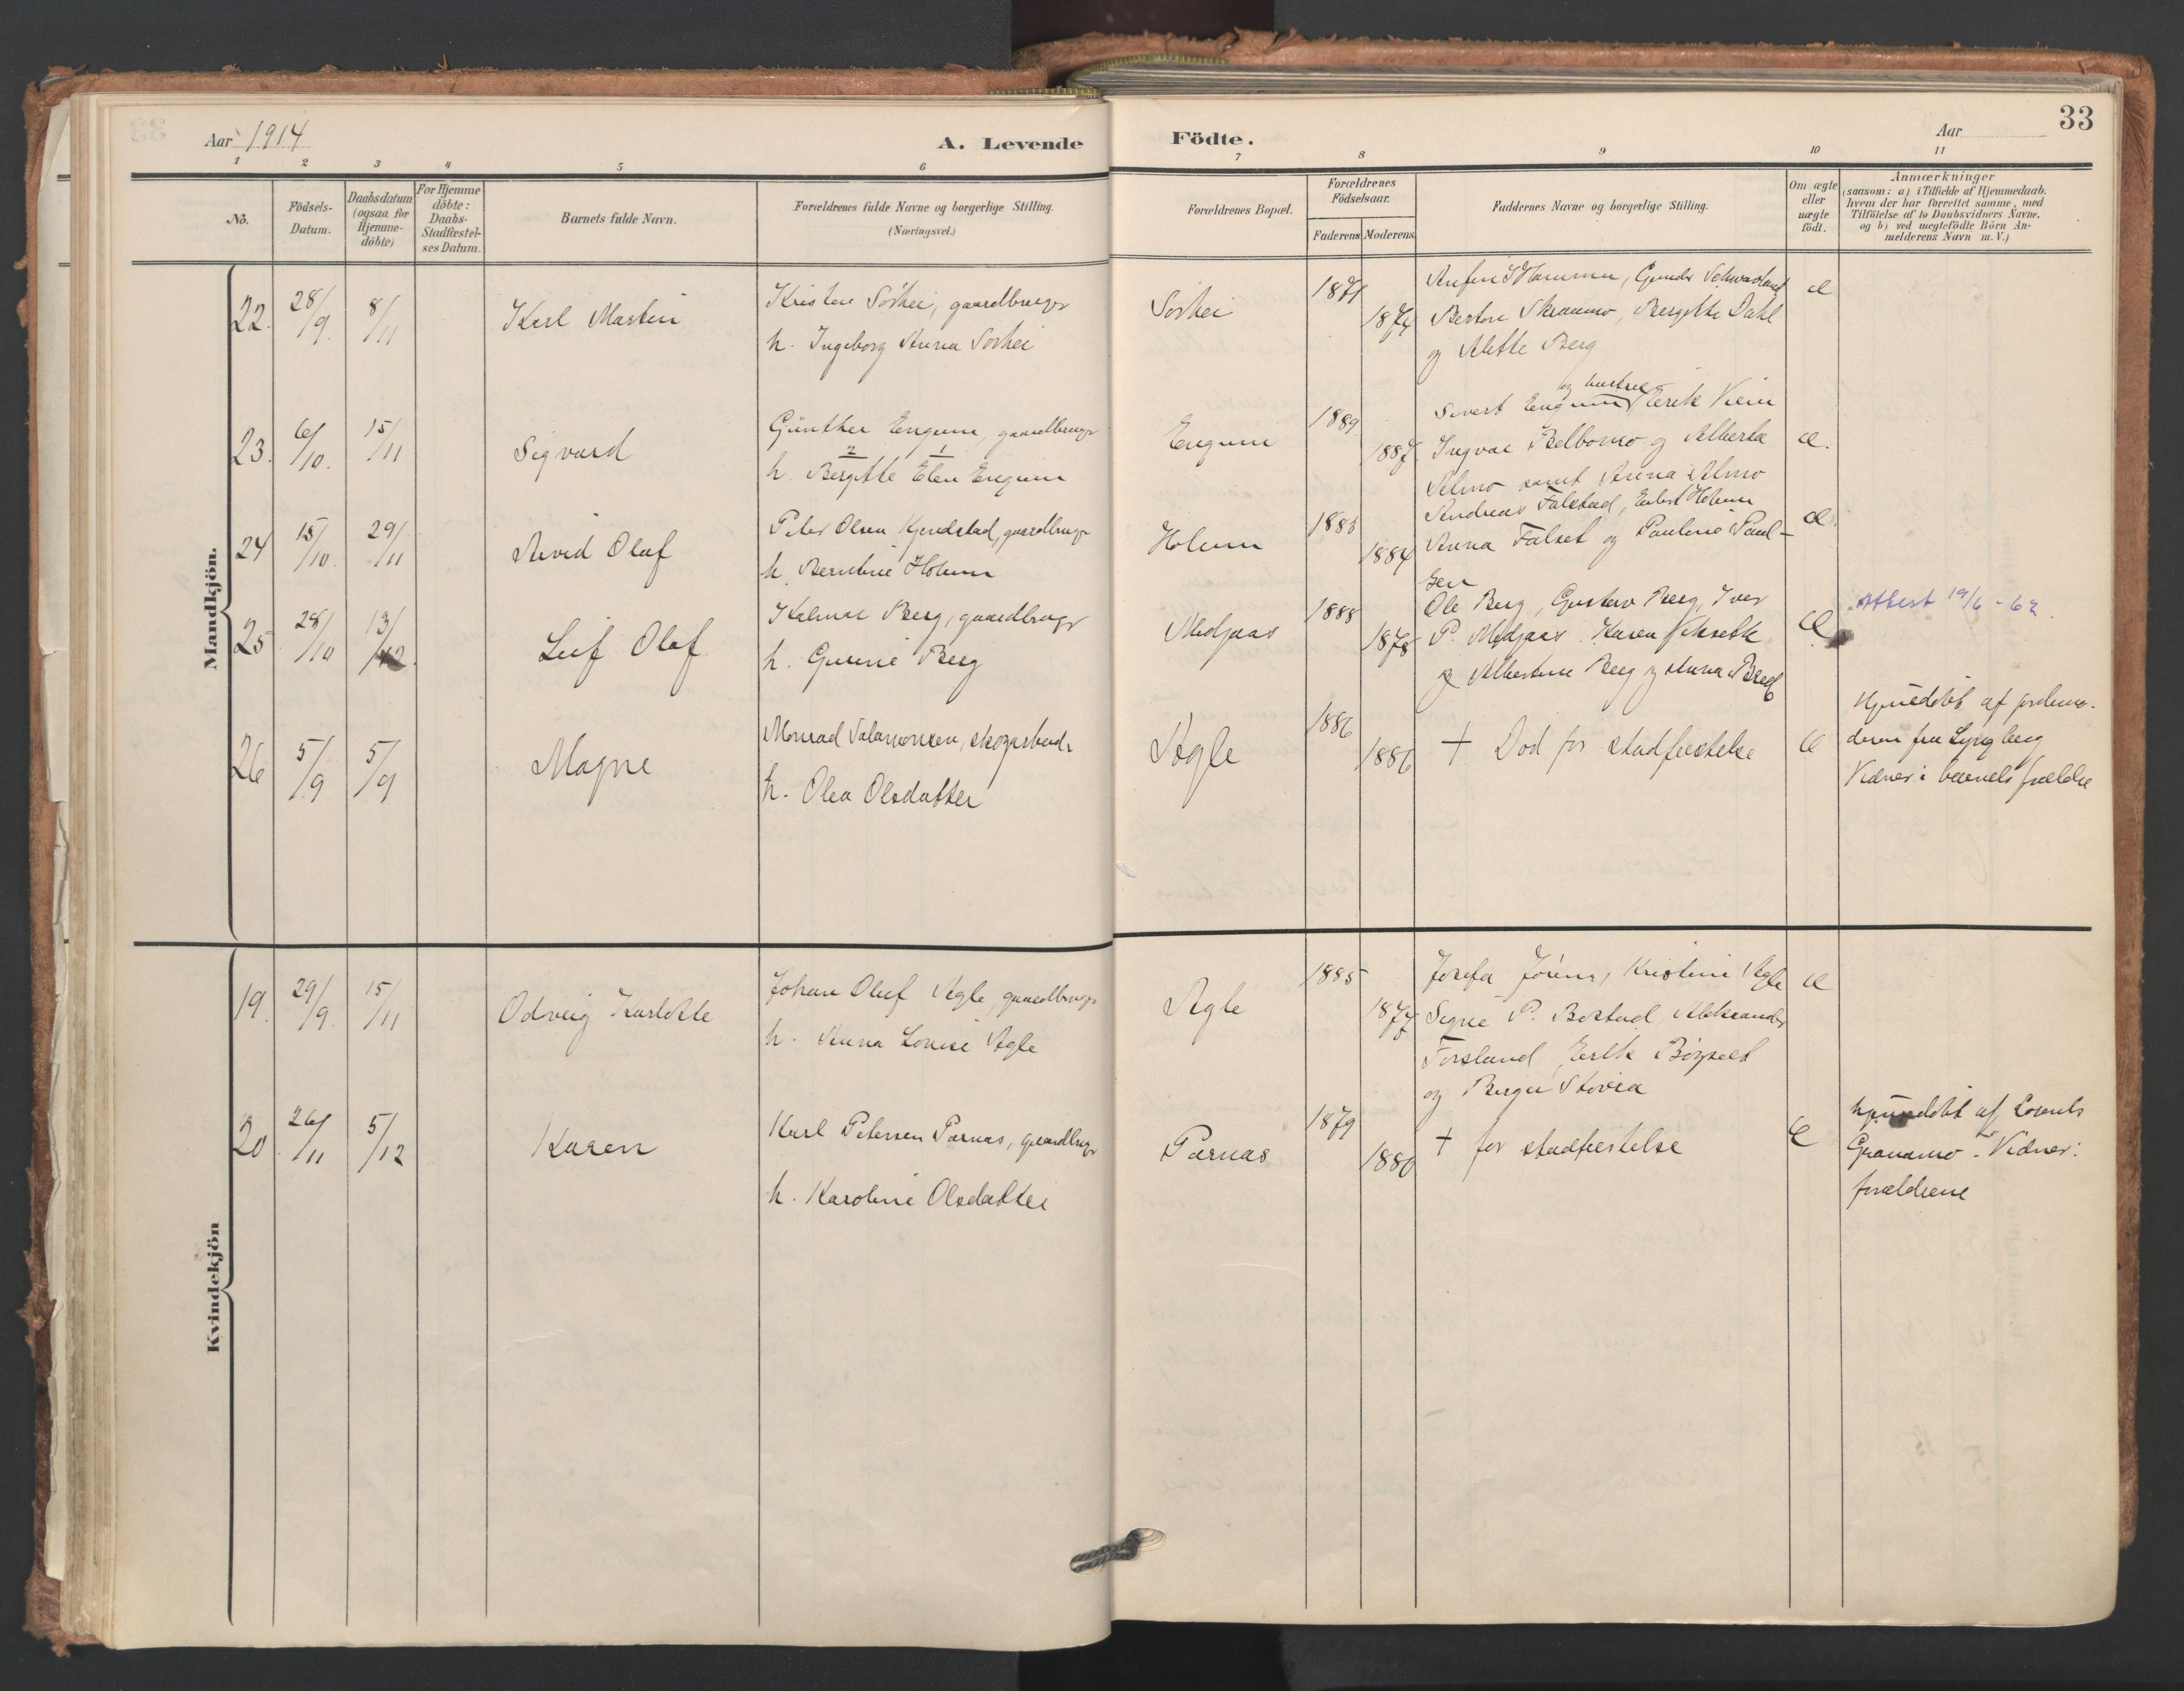 33
Aar 1914
A. Levende Födte.
Aar
1 2 3 4 5 6 7 8 9 10 11
No.
Födsels-
Datum.
Daabsdatum
(ogsaa for
Hjemme-
döbte)
For Hjemme
döbte:
Daabs-
Stadfæstel-
ses Datum.
Barnets fulde Navn.
Forældrenes fulde Navne og borgerlige Stilling.
(Næringsvei.)
Forældrenes Bopæl.
Forældrenes
Födselsaar.
Faderens Moderens
Faddernes Navne og borgerlige Stilling.
Om ægte
eller
uægte
födt.
Anmærkninger
(saasom: a) i Tilfælde af Hjemmedaab.
hvem der har forrettet samme, med
Tilföielse af to Daabsvidners Navne.
og b) ved uægtefödte Börn An-
melderens Navn m. V.)
Mandkjön.
22. 28/9. 8/11
Karl Martin
Kristen Sørhei, gaardbruger
h. Ingeborg Anna Sørhei
Sørhei
1871
1874
Gunder
Berton Skramo, Bergitte Dahl
og Alette Berg
æ
23. 6/10. 15/11
Sigvard
Günther Engum, gaardbruger
2 1
h. Bergitte Elen Engum
Engum
1889
1887
og hustru
Sivert Engum, Erik
Ingvar Belbomo og Alberta
Almo samt Anna Almo
æ.
24 15/10. 29/11
Arvid Oluf
Peter Olsen Kjendstad, gaardbruger
h. Berntine Holum
Holum
1885
1884
Andreas Falstad, Holum
Anna Falset og Pauline Paul-
sen
æ
25 28/10 13/12.
Leif Olaf
Hilmar Berg, gaardbruger
h. Gurine Berg
Medjaas
1888
1878
Ole Berg, Gustav Berg, Iver
P. Medjaas. Karen
og Albertine Berg og Anna Berg
æ
Attest 19/6 - 62
26 5/9 5/9
Magne
Monrad Salamonsen, skogsarbeider
h. Olea Olsdatter
Agle
1886
1886
† Død før stadfæstelse
æ
Hjmedøbt af jordmo-
deren fru Lyngberg
Vidner: barnets forældre
Kvindekjön
19. 29/9. 15/11
Odveig Karlotte
Johan Oluf Agle, gaardbruger
h. Anna Lovise Agle
Agle
1885
1877
Josefa Kristine Agle
Signe P. Bostad Aleksander
Forsland, Erik
og Birger Stovra
æ
20 26/11 5/12
Karen
Karl Petersen Parnas, gaardbruger
h. Karoline Olsdatter
Parnas
1879
1880
† før stadfæstelse
æ
hjemmedøbt af Lorents
Granamo - Vidner:
forældrene